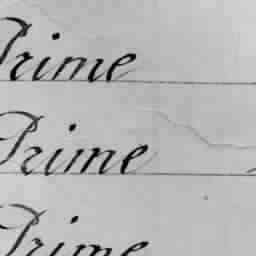 Prime
Prime
Prime